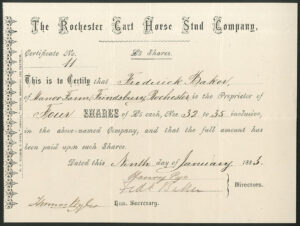 The Rochester Cart Horse Stud Company.
Certificate No. £5 Shares.
11
This is to Certify that Frederick Baker,
of Manor Farm, Frindsbury, Rochester is the Proprietor of
Four SHARES of £5 each, Nos 32 to 35 inclusive,
in the above-named Company, and that the full amount has
been paid upon such Shares.
Dated this Ninth day of January 188
Henry Pye
Fredk Baker
Directors.
Hon. Secretary.